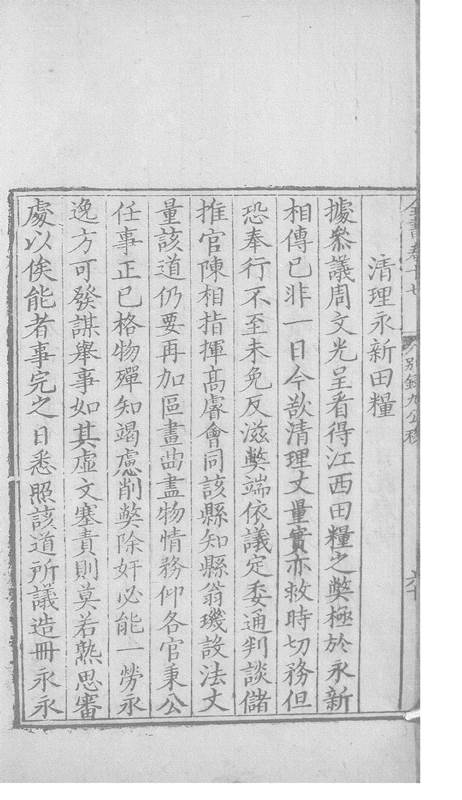 全書 卷十七 別錄九公移 六十
清理永新田糧
據叅議周文光呈看得江西田糧之獘極於永新
相傳已非一日今欲清理丈量實亦救時切務但
恐奉行不至未免反滋獘端依議定委通判談儲
推官陳相指揮髙睿會同該縣知縣翁璣設法丈
量該道仍要再加區畫曲盡物情務仰各官秉公
任事正已格物殫知竭慮削獘除奸必能一勞永
逸方可發謀舉事如其虛文塞責則莫若熟思審
處以俟能者事完之日悉照該道所議造冊永永